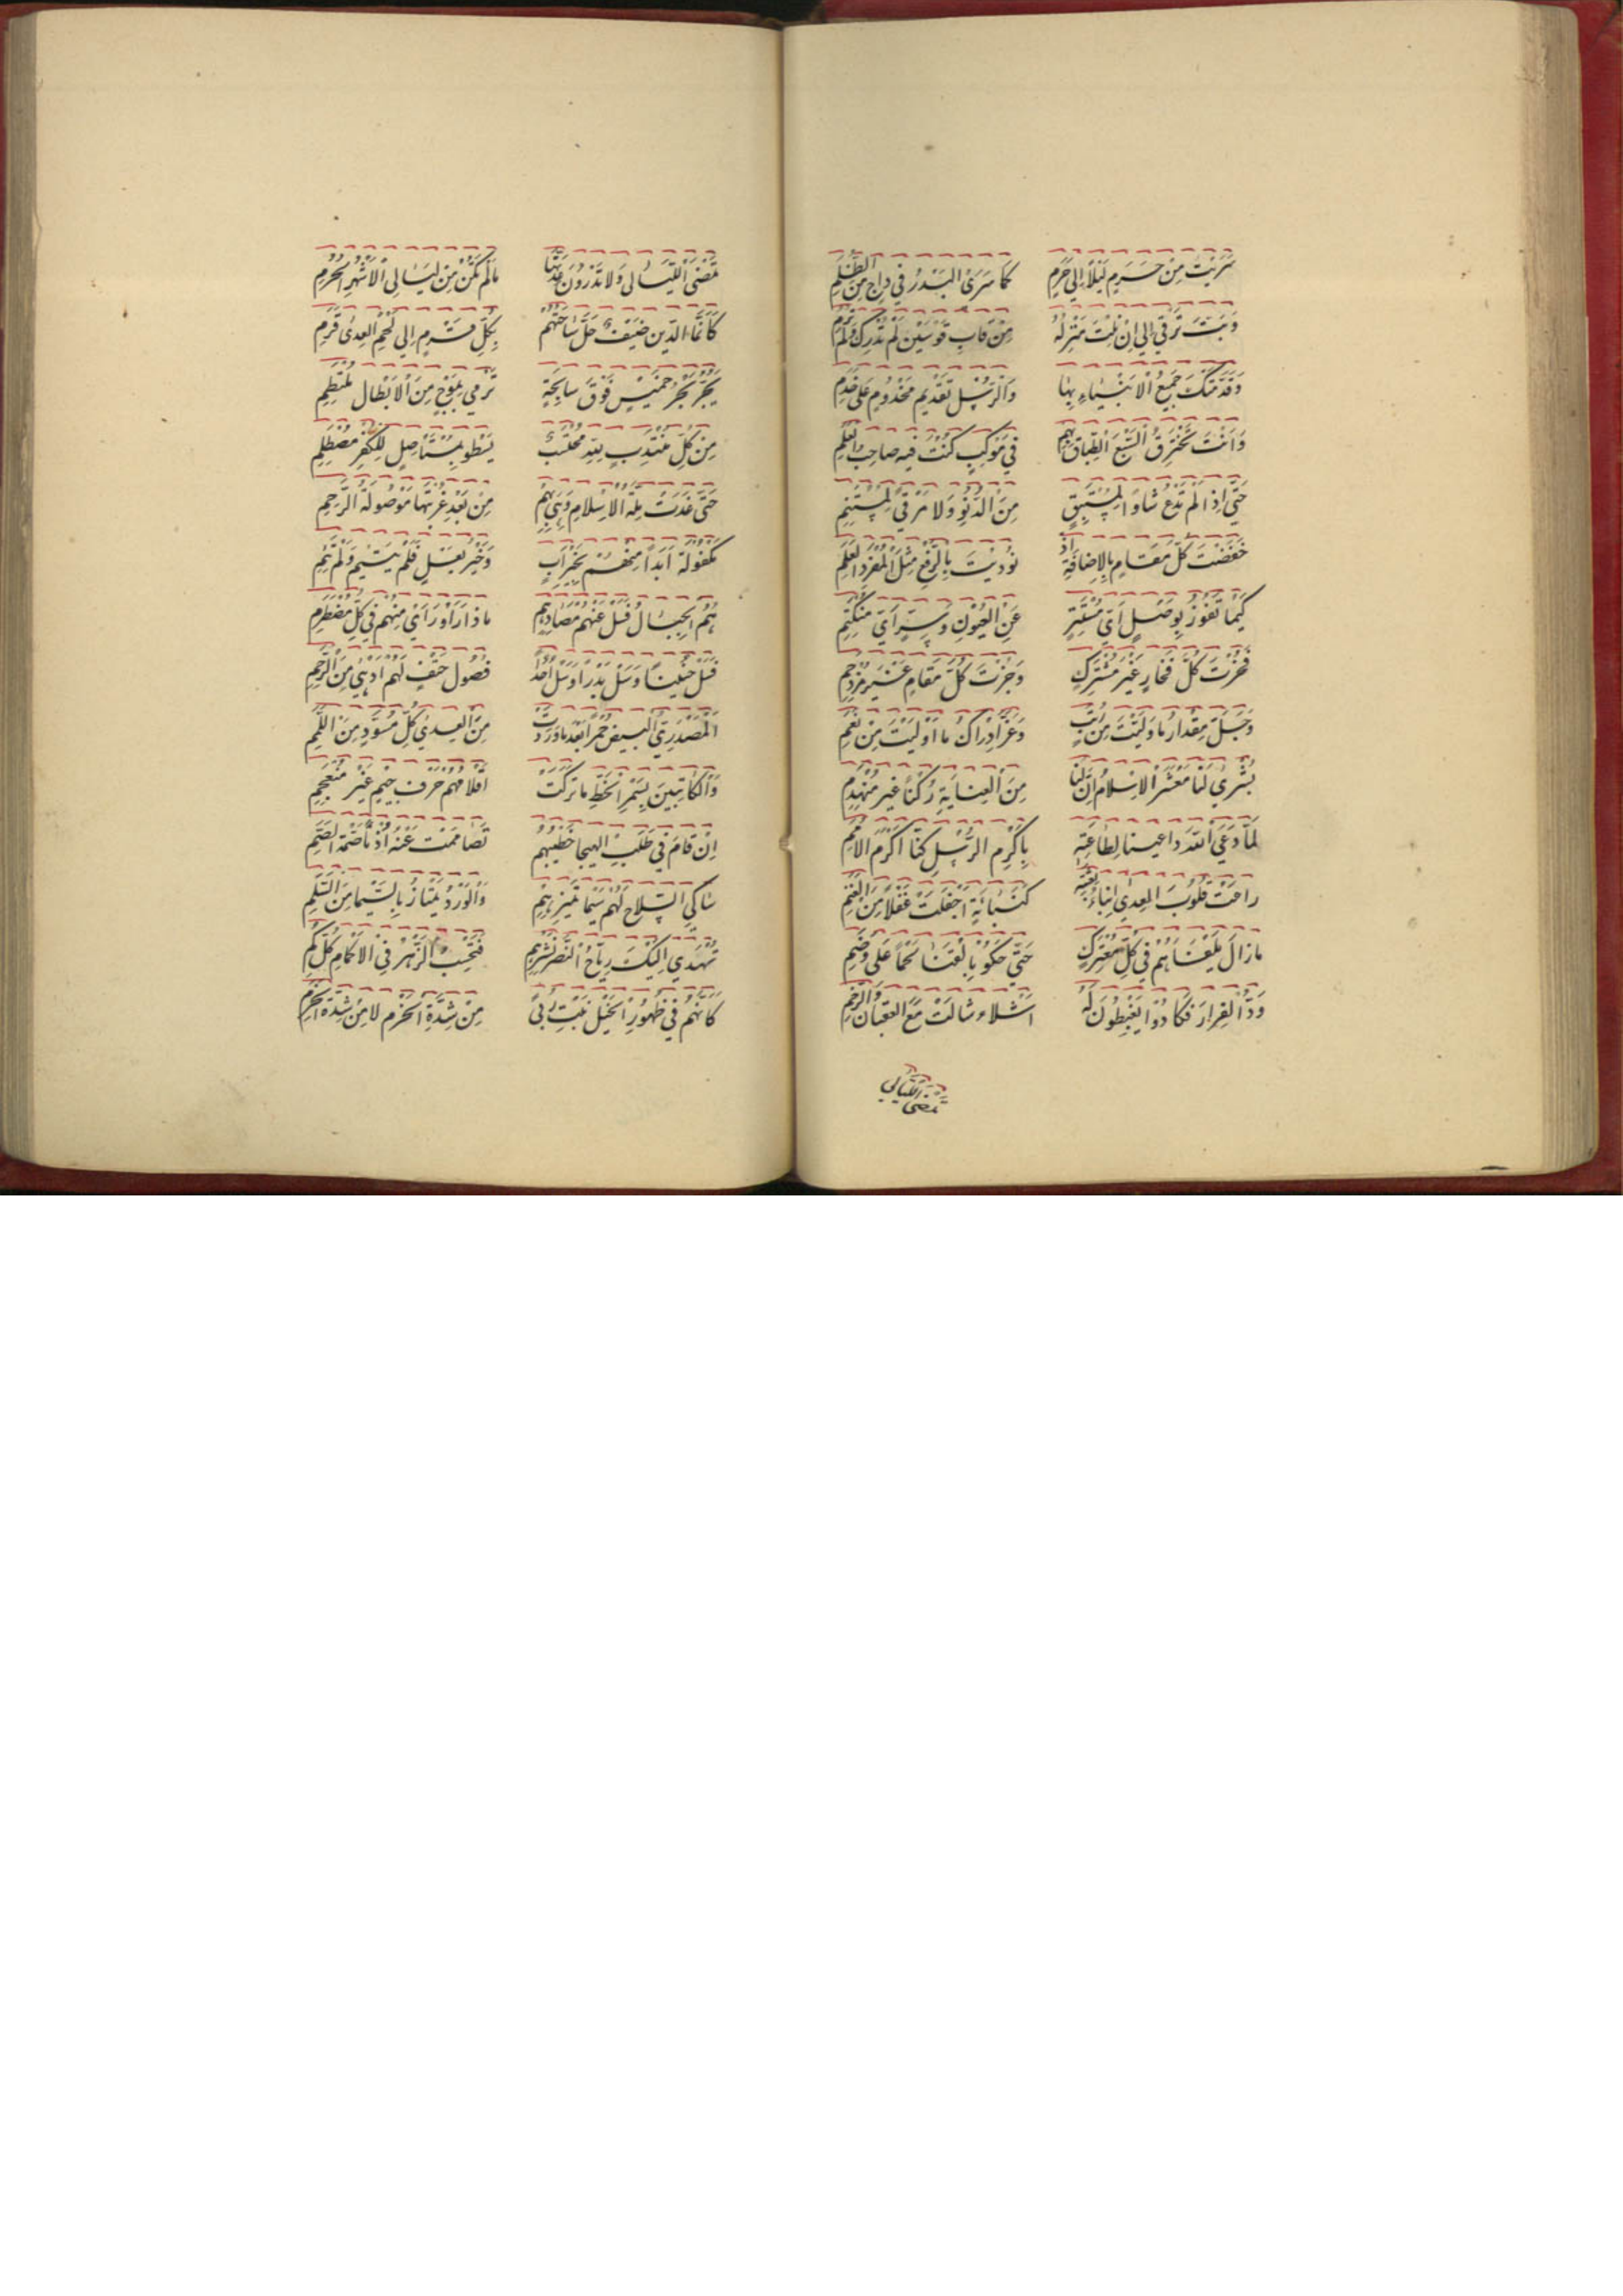 سَرَيْتَ مِنْ حَرَمٍ لَيْلًا إِلَى حَرَمٍ كَمَا سَرَى الْبَدْرُ فِي دَاجٍ مِنَ الظُّلَمِ
وَبَتَّ تَرْقَى إِلَى اِنْ نِلْتَ مَنْزِلَةً مِنْ قَابِ قَوْسَيْنِ لَمْ تُدْرَكْ وَلَمْ تُرَمِ
وَقَدَّمَتْكَ جَمِيعُ الْاَنْبِيَاءِ بِهَا وَالرُّسْلِ تَقْدِيمَ مَخْدُومٍ عَلَى خَدَمِ
وَاَنْتَ تَخْتَرِقُ السَّبْعَ الطِّبَاقَ بِهِمْ فِي مَوْكِبٍ كُنْتَ فِيهِ صَاحِبَ الْعَلَمِ
حَتَّى اِذَا لَمْ تَدَعْ شَاْوًا لِمُسْتَبِقٍ مِنَ الدُّنُوِّ وَلَا مَرْقًى لِمُسْتَنِمِ
خَفَضْتَ كُلَّ مَقَامٍ بِالْاِضَافَةِ اِذْ نُودِيتَ بِالرَّفْعِ مِثْلَ الْمُفْرَدِ الْعَلَمِ
كَيْمَا تَفُوزَ بِوَصْلٍ اَيِّ مُسْتَتِرٍ عَنِ الْعُيُونِ وَسِرٍّ اَيِّ مُكْتَتِمِ
فَحُزْتَ كُلَّ فَخَارٍ غَيْرَ مُشْتَرَكٍ وَجُزْتَ كُلَّ مَقَامٍ غَيْرَ مُزْدَحَمِ
وَجَلَّ مِقْدَارُ مَا وَلِيتَ مِنْ رُتَبٍ وَعَزَّ اِدْرَاكُ مَا اُولِيتَ مِنْ نِعَمِ
بُشْرَى لَنَا مَعْشَرَ الْاِسْلَامِ اِنَّ لَنَا مِنَ الْعِنَايَةِ رُكْنًا غَيْرَ مُنْهَدِمِ
لَمَّا دَعَى اللّٰهُ دَاعِينَا لِطَاعَتِهِ بِاَكْرَمِ الرُّسْلِ كُنَّا اَكْرَمَ الْاُمَمِ
رَاعَتْ قُلُوبَ الْعِدَى اَنْبَاءُ بِعْثَتِهِ كَنَبْاَةٍ اَجْفَلَتْ غُفْلًا مِنَ الْغَنَمِ
مَا زَالَ يَلْقَاهُمْ فِي كُلِّ مُعْتَرَكٍ حَتَّى حَكَوْا بِالْقَنَا لَحْمًا عَلَى وَضَمِ
وَدُّوا الْفِرَارَ فَكَادُوا يَغْبِطُونَ بِهِ اَشْلَاءَ شَالَتْ مَعَ الْعِقْبَانِ وَالرَّخَمِ
تمضى الليالى
تَمْضِى اللَّيَالِى وَلَا يَدْرُونَ عِدَّتَهَا مَا لَمْ تَكُنْ مِنْ لَيَالِى الْاَشْهُرِ الْحُرُمِ
كَاَنَّمَا الدِّينُ ضَيْفٌ حَلَّ سَاحَتَهُمْ بِكُلِّ قَرْمٍ اِلَى لَحْمِ الْعِدَى قَرِمِ
يَجُرُّ بَحْرَ خَمِيسٍ فَوْقَ سَابِحَةٍ تَرْمِي بِمَوْجٍ مِنَ الْاَبْطَالِ مُلْتَطِمِ
مِنْ كُلِّ مُنْتَدِبٍ لِلّٰهِ مُحْتَسِبٍ يَسْطُو بِمُسْتَأْصِلٍ لِلْكُفْرِ مُصْطَلِمِ
حَتَّى غَدَتْ مِلَّةُ الْاِسْلَامِ وَهْيَ بِهِمْ مِنْ بَعْدِ غُرْبَتِهَا مَوْصُولَةَ الرَّحِمِ
مَكْفُولَةً اَبَدًا مِنْهُمْ بِخَيْرِ اَبٍ وَخَيْرِ بَعْلٍ فَلَمْ تَيْتَمْ وَلَمْ تَئِمِ
هُمُ الْجِبَالُ فَسَلْ عَنْهُمْ مُصَادِمَهُمْ مَاذَا رَأَوْا رَأَى مِنْهُمْ فِي كُلِّ مُصْطَدَمِ
فَسَلْ حُنَيْنًا وَسَلْ بَدْرًا وَسَلْ اُحُدًا فُصُولُ حَتْفٍ لَهُمْ اَدْهَى مِنَ الْوَخَمِ
اَلْمُصْدِرِى الْبِيضِ حُمْرًا بَعْدَ مَا وَرَدَتْ مِنَ الْعِدَى كُلَّ مُسْوَدٍّ مِنَ اللِّمَمِ
وَالْكَاتِبِينَ بِسُمْرِ الْخَطِّ مَا تَرَكَتْ اَقْلَامُهُمْ حَرْفَ جِسْمٍ غَيْرَ مُنْعَجِمِ
اِنْ قَامَ فِي طَلَبِ الْهَيْجَا خَطِيبُهُمْ تَصَامَمَتْ عَنْهُ اُذْنَا صِمَّةِ الصِّمَمِ
شَاكِي السِّلَاحِ لَهُمْ سِيمَا تُمَيِّزُهُمْ وَالْوَرْدُ يَمْتَازُ بِالسِّيمَا مِنَ السَّلَمِ
تُهْدِي اِلَيْكَ رِيَاحُ النَّصْرِ نَشْرَهُمْ فَتَحْسِبُ الزَّهْرَ فِي الْاَكْمَامِ كُلَّ كَمِي
كَاَنَّهُمْ فِي ظُهُورِ الْخَيْلِ نَبْتُ رُبًى مِنْ شِدَّةِ الْحَزْمِ لَا مِنْ شِدَّةِ الْحُزُمِ